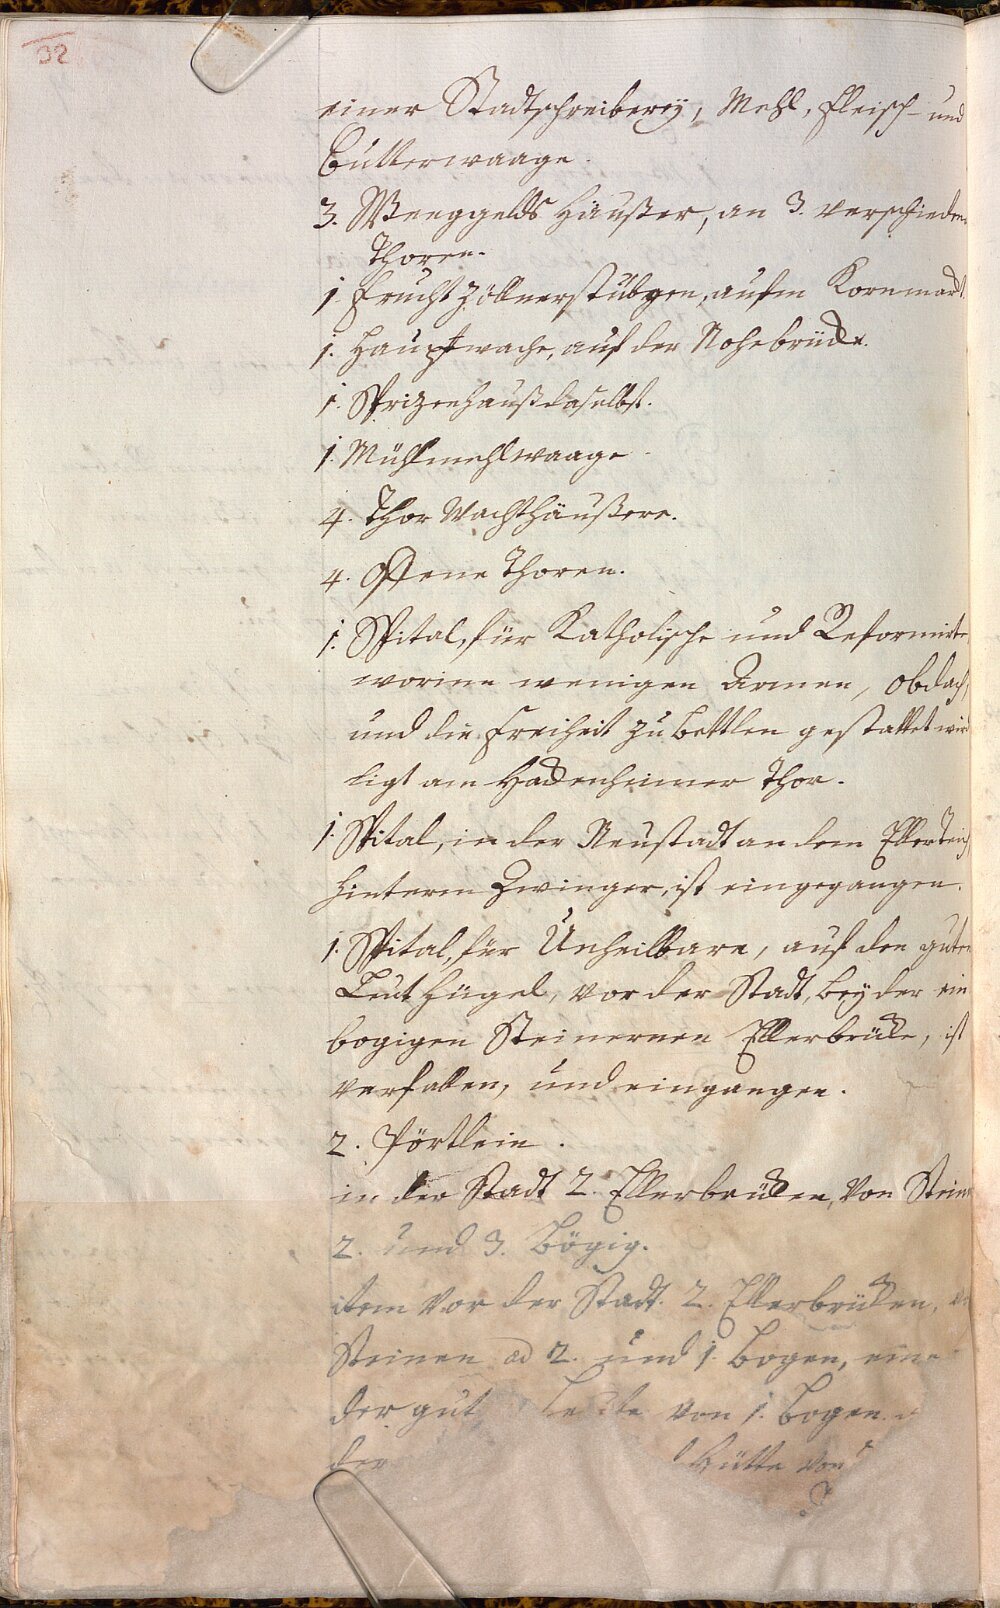 einer Stadtschreiberej, Mehl, Fleisch- und
Butterwaage.
3. Weeggelds Häußer, an 3. verschieden
Thoren.
1. Frucht Zöllnerstübgen, aufm Kornmarck
1. Hauptwache, auf der Nohebrücke.
1. Sprizenhauß daselbst.
1. Mühlmehlwaage
4. Thor Wachthäußere.
4. Offene Thoren.
1. Spital, für Katholische und Reformirte
worinn wenigen Armen, Obdach,
und die Freiheit zu bettlen gestattet wird
ligt am Hackenheimer Thor.
1. Spital, in der Neustadt an dem Ellerteich
hinterm Zwinger, ist eingegangen.
1. Spital, für Unheilbare, auf den guten
Leut Hügel, vor der Stadt, bey der ein
bogigen Steinernen Ellerbrücke, ist
verfallen, und eingangen.
2. Pörtlein.
in der Stadt 2. Ellerbrücken, von Stein
2. und 3. bögig.
item vor der Stadt. 2. Ellerbrücken,
Steinen ad 2. und 1. Bogen, eine
der gut Leute von 1. Bogen.
der Hütte von